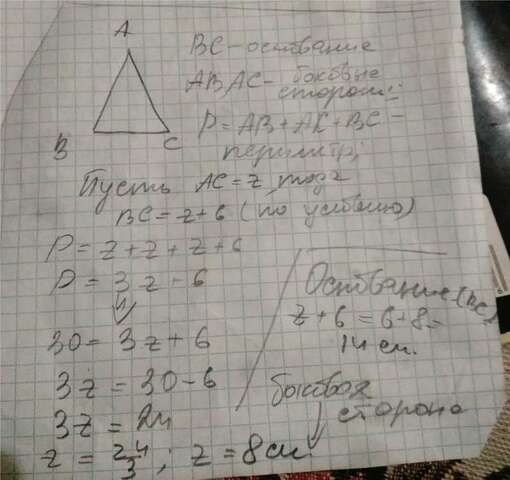 A
B
C
BC - основание
AB, AC - боковые
стороны
P = AB + AC + BC -
периметр
Пусть AC = z, тогда
BC = z + 6 (по условию)
P = z + z + z + 6
P = 3z - 6
30 = 3z + 6
3z = 30 - 6
3z = 24
z = 24/3 ; z = 8 см
Основание (BC)
z + 6 = 6 + 8 =
14 см.
боковая
сторона